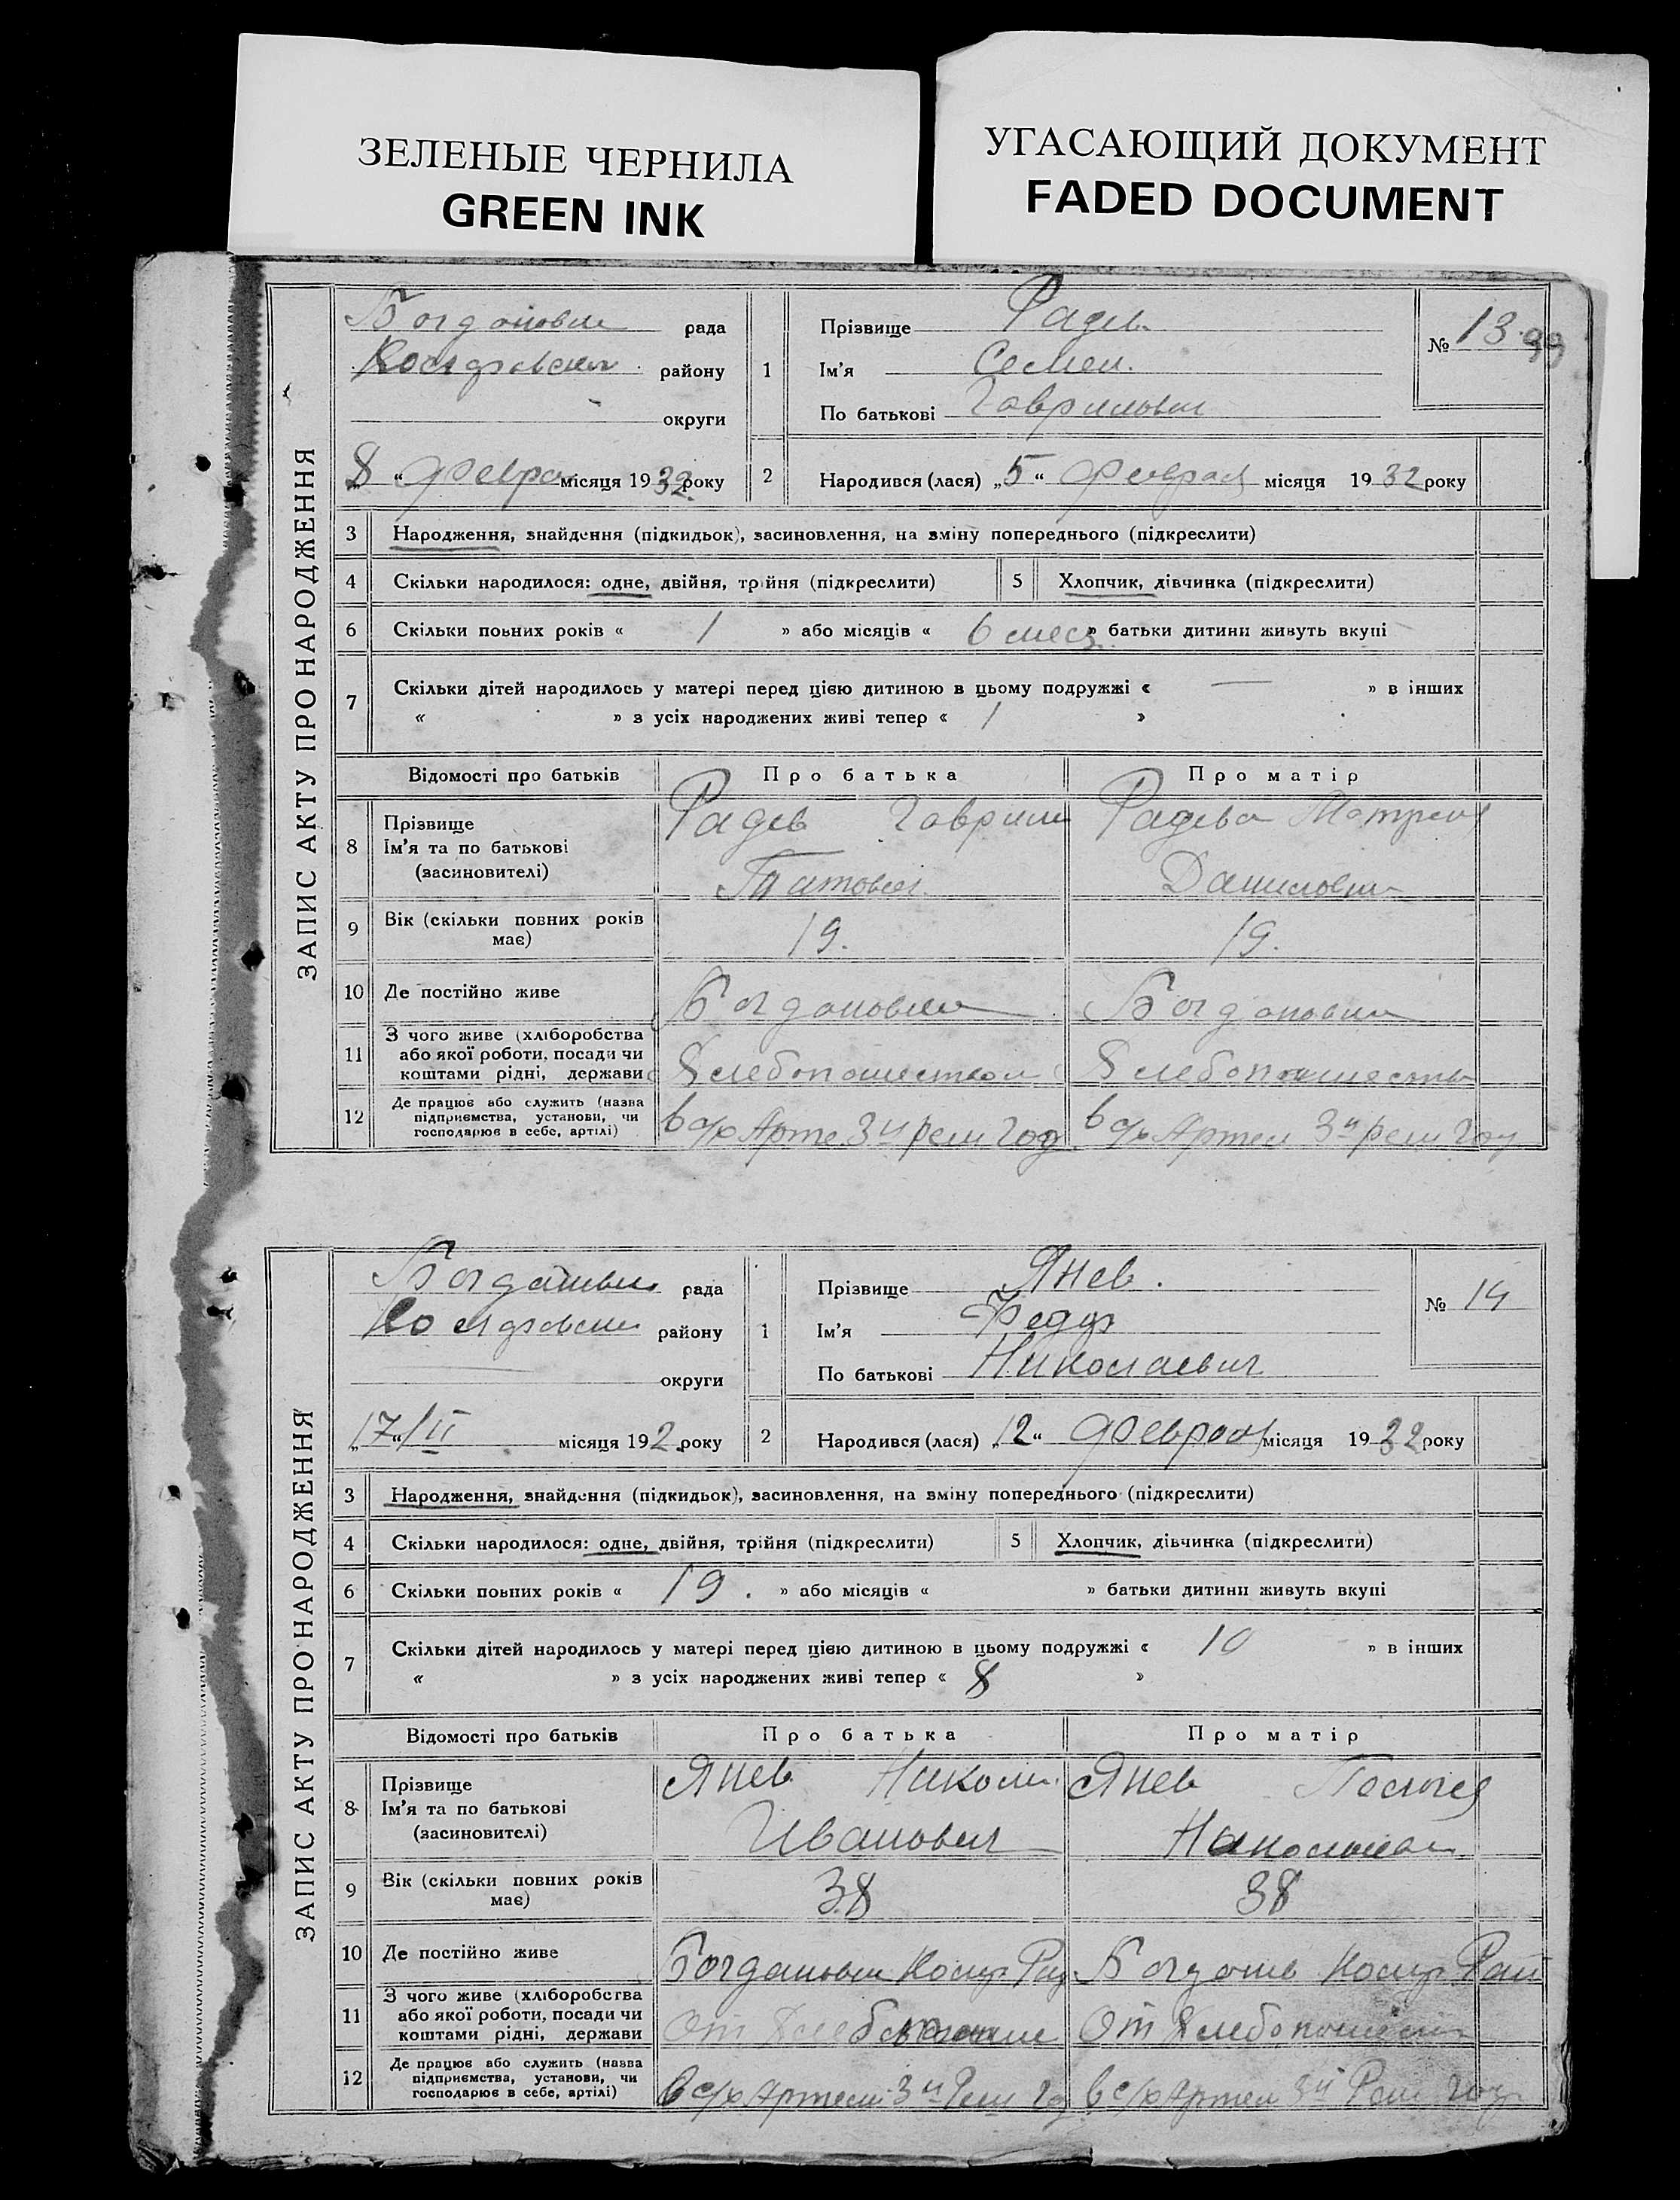 ЗЕЛЕНЫЕ ЧЕРНИЛА
GREEN INK
УГАСАЮЩИЙ ДОКУМЕНТ
FADED DOCUMENT
ЗАПИС АКТУ ПРО НАРОДЖЕННЯ
рада
району
округи
„8“ Февра місяця 1932 року
1
Прізвище Радев
Ім'я Семен.
По батькові Гаврилович
№ 13. 99
2
Народився (лася) „5“ Февраля місяця 1932 року
3 Народження, знайдення (підкидьок), засиновлення, на зміну попереднього (підкреслити)
4 Скільки народилося: одне, двійня, трійня (підкреслити)
5 Хлопчик, дівчинка (підкреслити)
6 Скільки повних років « 1 » або місяців « 6 мес » батьки дитини живуть вкупі
7 Скільки дітей народилось у матері перед цією дитиною в цьому подружжі « — » в інших
« » з усіх народжених живі тепер « 1 »
Відомості про батьків Про батька Про матір
8 Прізвище
Ім'я та по батькові
(засиновителі)
Радев Гаврил
Радева Матрена
Даниловн
9 Вік (скільки повних років має) 19. 19.
10 Де постійно живе
11 З чого живе (хліборобства або якої роботи, посади чи коштами рідні, держави
12 Де працює або служить (назва підприємства, установи, чи господарює в себе, артілі)
в с/х Арте 3й реш год в с/х Артел 3й реш год
ЗАПИС АКТУ ПРО НАРОДЖЕННЯ
рада
району
округи
„17“/II місяця 192 року
1
Прізвище Янев.
Ім'я Федор
По батькові Николаевич
№ 14
2
Народився (лася) „12“ Февраля місяця 1932 року
3 Народження, знайдення (підкидьок), засиновлення, на зміну попереднього (підкреслити)
4 Скільки народилося: одне, двійня, трійня (підкреслити)
5 Хлопчик, дівчинка (підкреслити)
6 Скільки повних років « 19. » або місяців « » батьки дитини живуть вкупі
7 Скільки дітей народилось у матері перед цією дитиною в цьому подружжі « 10 » в інших
« » з усіх народжених живі тепер « 8 »
Відомості про батьків Про батька Про матір
8 Прізвище
Ім'я та по батькові
(засиновителі)
Янев Никол.
Иванович
Янев
9 Вік (скільки повних років має) 38 38
10 Де постійно живе
11 З чого живе (хліборобства або якої роботи, посади чи коштами рідні, держави
От От
12 Де працює або служить (назва підприємства, установи, чи господарює в себе, артілі)
в с/х Артели 3й Реш год в с/х Артел 3й Реш год